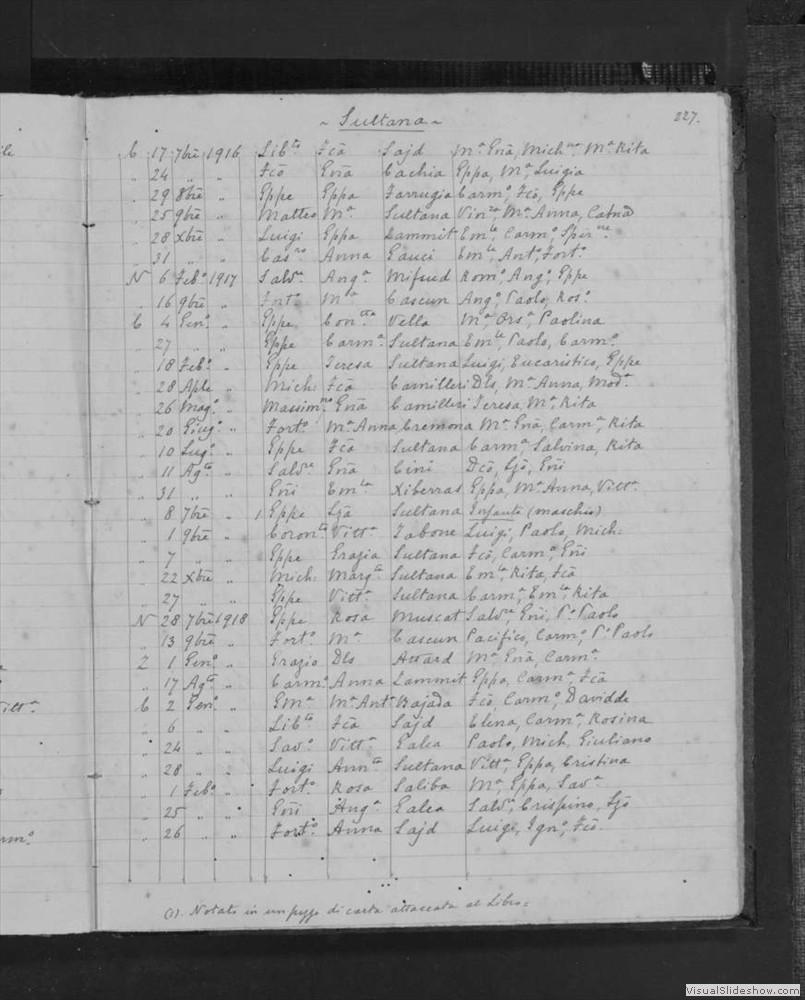 ~ Sultana ~ 227.
C 17 7bre 1916 Lib.to Fcã Sajd M.a Gnã, Mich.na M.a Rita
„ 24 „ „ Fcõ Gnã Cachia Eppa, M.a Luigia
„ 29 8bre „ Eppe Eppa Farrugia Carm.o, Fcõ, Eppe
„ 25 9bre „ Matteo M.a Sultana Vin.za, M.a Anna, Catnã
„ 28 Xbre „ Luigi Eppa Zammit Em.le, Carm.o
„ 31 „ „ Cas.ro Anna Gauci Em.le, Ant.o, Fort.o
N 6 Feb.o 1917 Salv.e Ang.a Mifsud Rom.o, Ang.o, Eppe
„ 16 9bre „ Fort.o M.a Cascun Ang.o, Paolo, Ros.o
C 4 Gen.o „ Eppe Con.tta Vella M.a, Ors.a, Paolina
„ 27 „ „ Eppe Carm.a Sultana Em.le, Paolo, Carm.o
„ 18 Feb.o „ Eppe Teresa Sultana Luigi, Eucaristico, Eppe
„ 28 Aple „ Mich: Fcã Camilleri Dls, M.a Anna, Mod.a
„ 26 Mag.o „ Massim.no Gnã Camilleri Teresa, M.a, Rita
„ 20 Giug.o „ Fort.o M.a Anna Cremona M.a Gnã, Carm.a, Rita
„ 10 Lug.o „ Eppe Fcã Sultana Carm.a, Salvina, Rita
„ 11 Ag.to „ Salv.re Gnã Cini Dcõ, Ljõ, Gñi
„ 31 „ „ Gñi Em.la Xiberras Eppa, M.a Anna, Vitt.a
„ 8 7bre „ 1 Eppe Ljã Sultana Infante (maschio)
„ 1 9bre „ Coron.to Vitt.a Tabone Luigi, Paolo, Mich:
„ 7 „ „ Eppe Grazia Sultana Fcõ, Carm.a, Gñi
„ 22 Xbre „ Mich: Marg.ta Sultana Em.la, Rita, Fcã
„ 27 „ „ Eppe Vitt.a Sultana Carm.a, Em.la, Rita
N 28 7bre 1918 Eppe Rosa Muscat Salv.re, Gñi, P.o Paolo
„ 13 9bre „ Fort.o M.a Cascun Pacifico, Carm.o, P.o Paolo
Z 1 Gen.o „ Grazio Dls Attard M.a Gnã, Carm.a
„ 17 Ag.to „ Carm.o Anna Zammit Eppa, Carm.a, Fcã
C 2 Gen.o „ Gm.a M.a Ant.a Bajada Fcõ, Carm.o, Davidde
„ 6 „ „ Lib.to Fcã Sajd Elena, Carm.a, Rosina
„ 24 „ „ Sav.o Vitt.a Galea Paolo, Mich, Giuliano
„ 28 „ „ Luigi Annu.ta Sultana Vitt.a, Eppa, Cristina
„ 1 Feb.o „ Fort.o Rosa Saliba M.a, Eppa, Sav.a
„ 25 „ „ Gñi Ang.a Galea Salv.a, Crispino, Ljõ
„ 26 „ „ Fort.o Anna Sajd Luigi, Ign.o, Fcõ
(1). Notato in un pezzo di carta attaccata al Libro=
VisualSlideshow.com